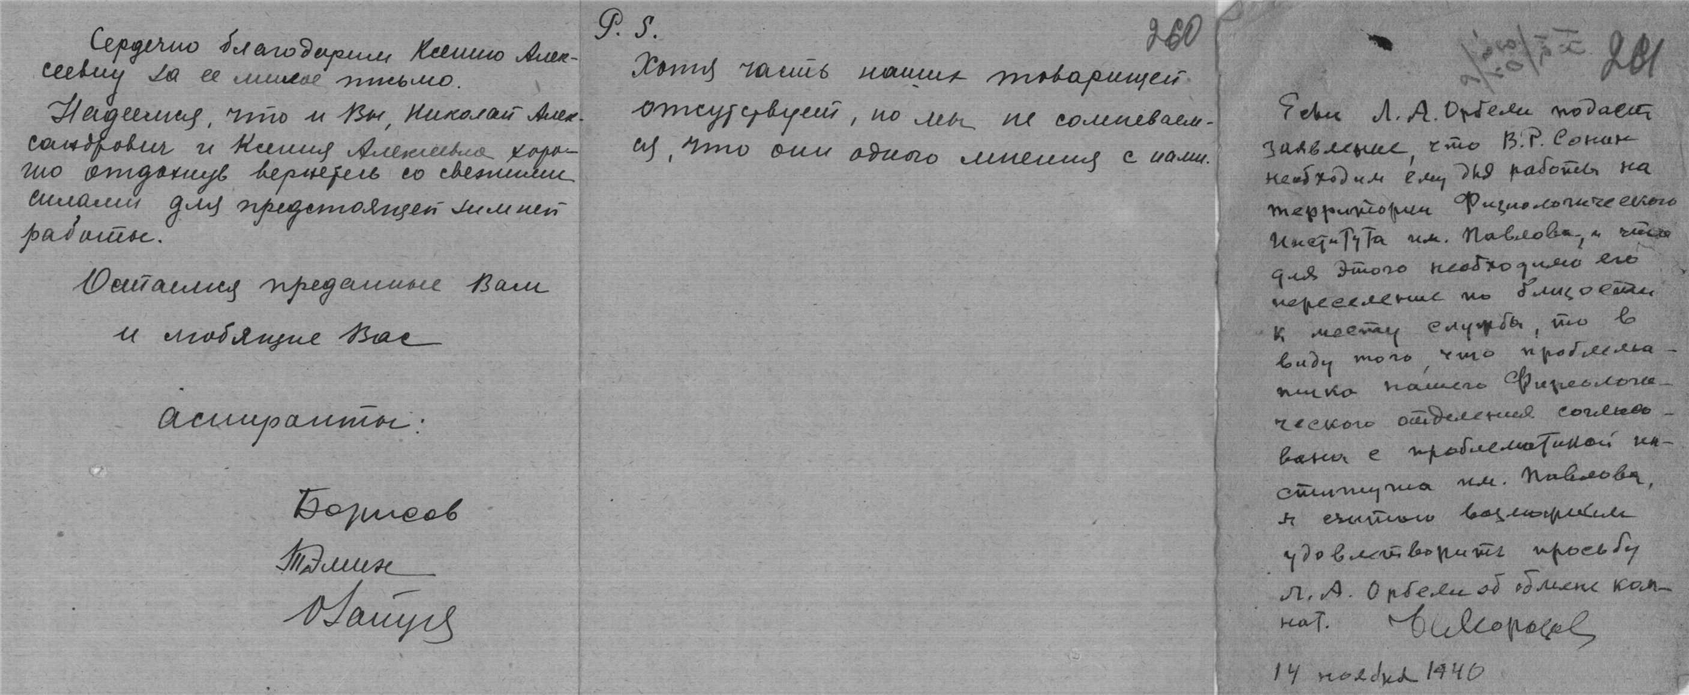 Сердечно благодарим Ксению Алек-
сеевну за ее милое письмо.
Надеемся, что и Вы, Николай Алек-
сандрович и Ксения Алексеевна хоро-
шо отдохнув вернетесь со свежими
силами для предстоящей зимней
работы.
Остаемся преданные Вам
и любящие Вас
Аспиранты:
Борисов
P. S.
260
Хотя часть наших товарищей
отсутствует, но мы не сомневаем-
ся, что они одного мнения с нами.
261
Если Л. А. Орбели подает
заявление, что В. Р. Сонин
необходим ему для работы на
территории Физиологического
Института им. Павлова, и что
для этого необходимо его
переселение по близости
к месту службы, то в
виду того, что проблема-
тика нашего Физиологи-
ческого отделения согласо-
вана с проблематикой ин-
ститута им. Павлова,
я считаю возможным
удовлетворить просьбу
Л. А. Орбели об обмене ком-
нат.
Морозов
14 ноября 1940